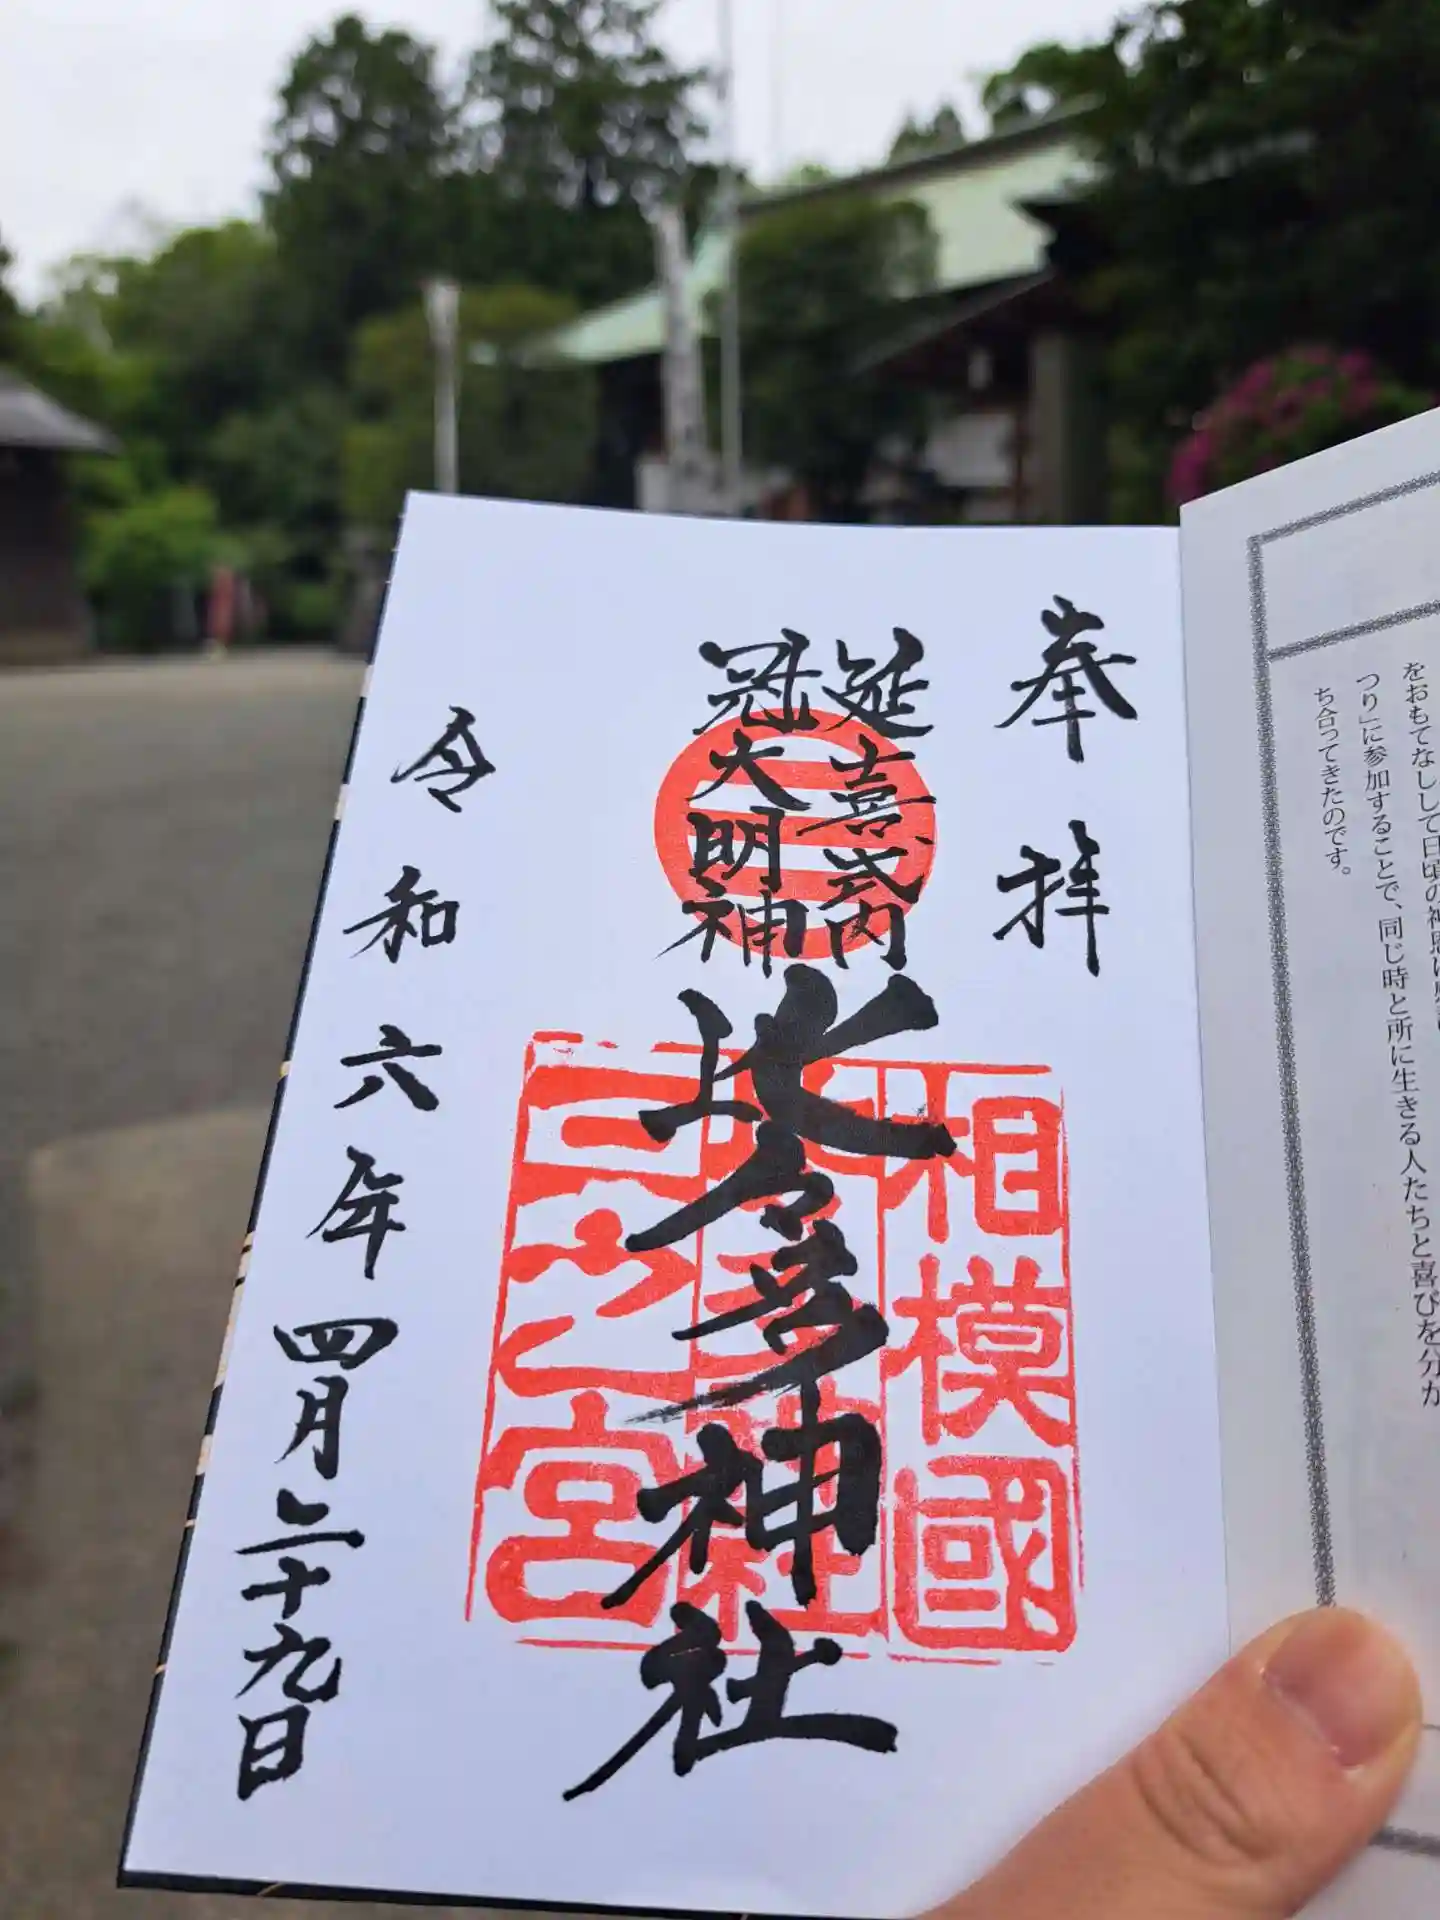 をおもてなしして日頃の神恩に
つり」に参加することで、同じ時と所に生きる人たちと喜びを分か
ち合ってきたのです。
奉拝
延喜式内
冠大明神
比々多神社
相模國
比々多神社
三之宮
令和六年四月二十九日